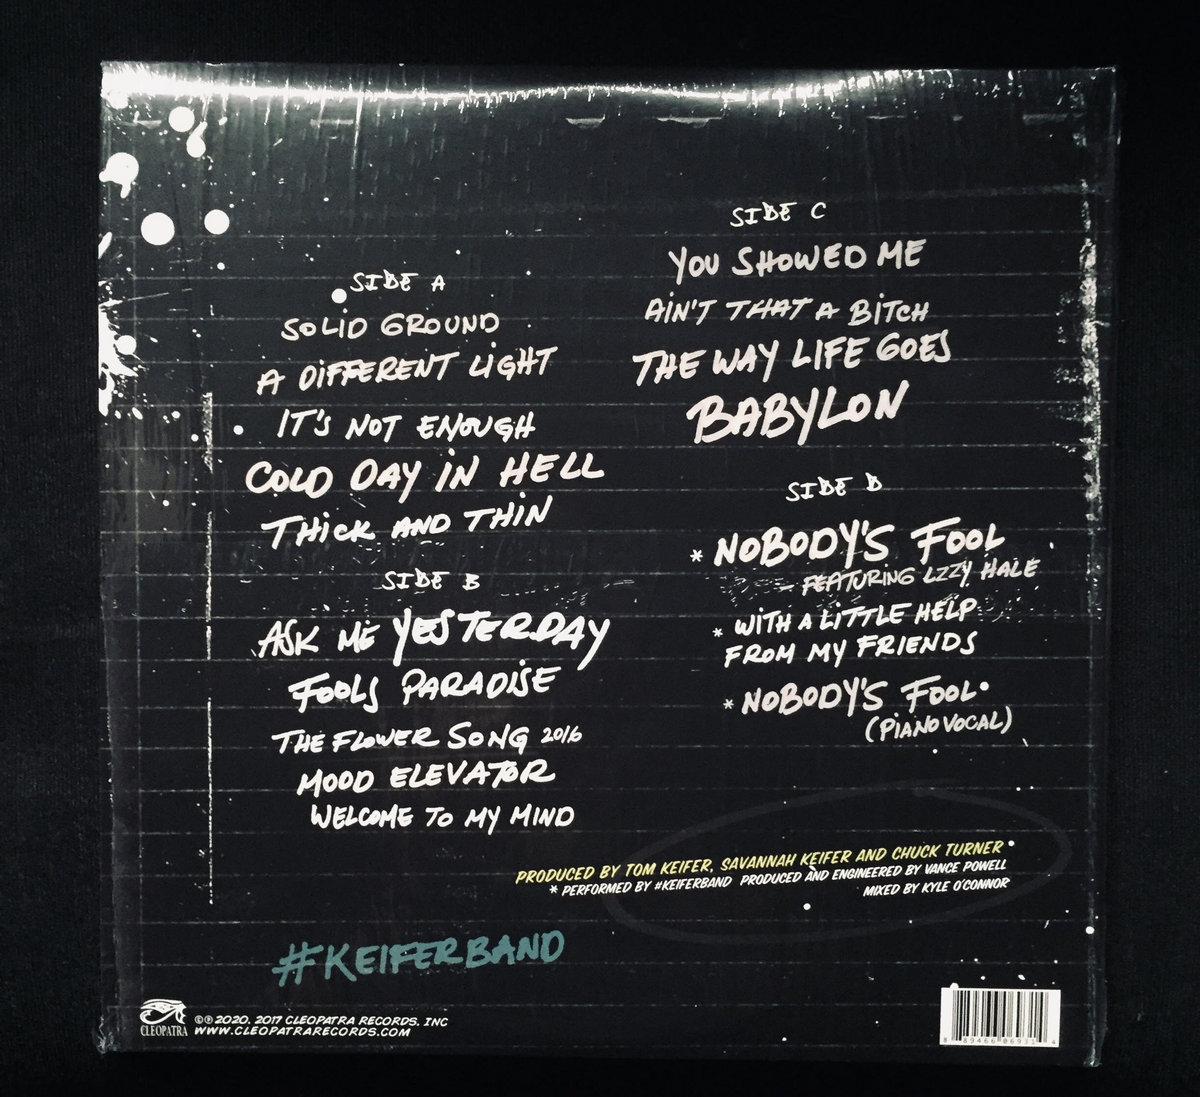 SIDE A
SOLID GROUND
A DIFFERENT LIGHT
IT'S NOT ENOUGH
COLD DAY IN HELL
THICK AND THIN
SIDE B
ASK ME YESTERDAY
FOOLS PARADISE
THE FLOWER SONG 2016
MOOD ELEVATOR
WELCOME TO MY MIND
SIDE C
YOU SHOWED ME
AIN'T THAT A BITCH
THE WAY LIFE GOES
BABYLON
SIDE D
* NOBODY'S FOOL
- FEATURING LZZY HALE
* WITH A LITTLE HELP
FROM MY FRIENDS
* NOBODY'S FOOL
(PIANO VOCAL)
PRODUCED BY TOM KEIFER, SAVANNAH KEIFER AND CHUCK TURNER
* PERFORMED BY #KEIFERBAND PRODUCED AND ENGINEERED BY VANCE POWELL
MIXED BY KYLE O'CONNOR
#KEIFERBAND
CLEOPATRA
©℗ 2020, 2017 CLEOPATRA RECORDS, INC
WWW.CLEOPATRARECORDS.COM
8 89466 06931 4